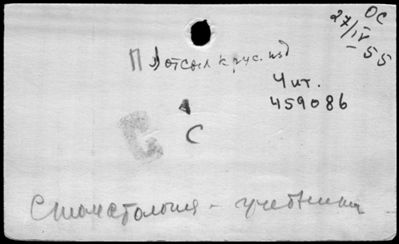 ОС
27/IV-55
П отсыл к рус. изд
Чит.
459086
А
С
С
Стоматология - учебники